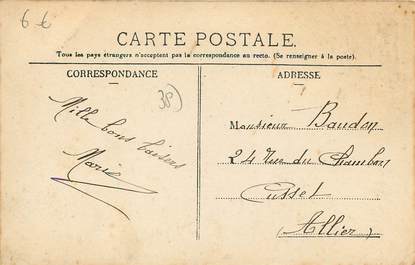 6 €
CARTE POSTALE.
Tous les pays étrangers n'acceptent pas la correspondance au recto. (Se renseigner à la poste).
CORRESPONDANCE
ADRESSE
38
Mille bons baisers
Marie
Monsieur Baudon
24 Rue du Chambon
Cusset
(Allier)